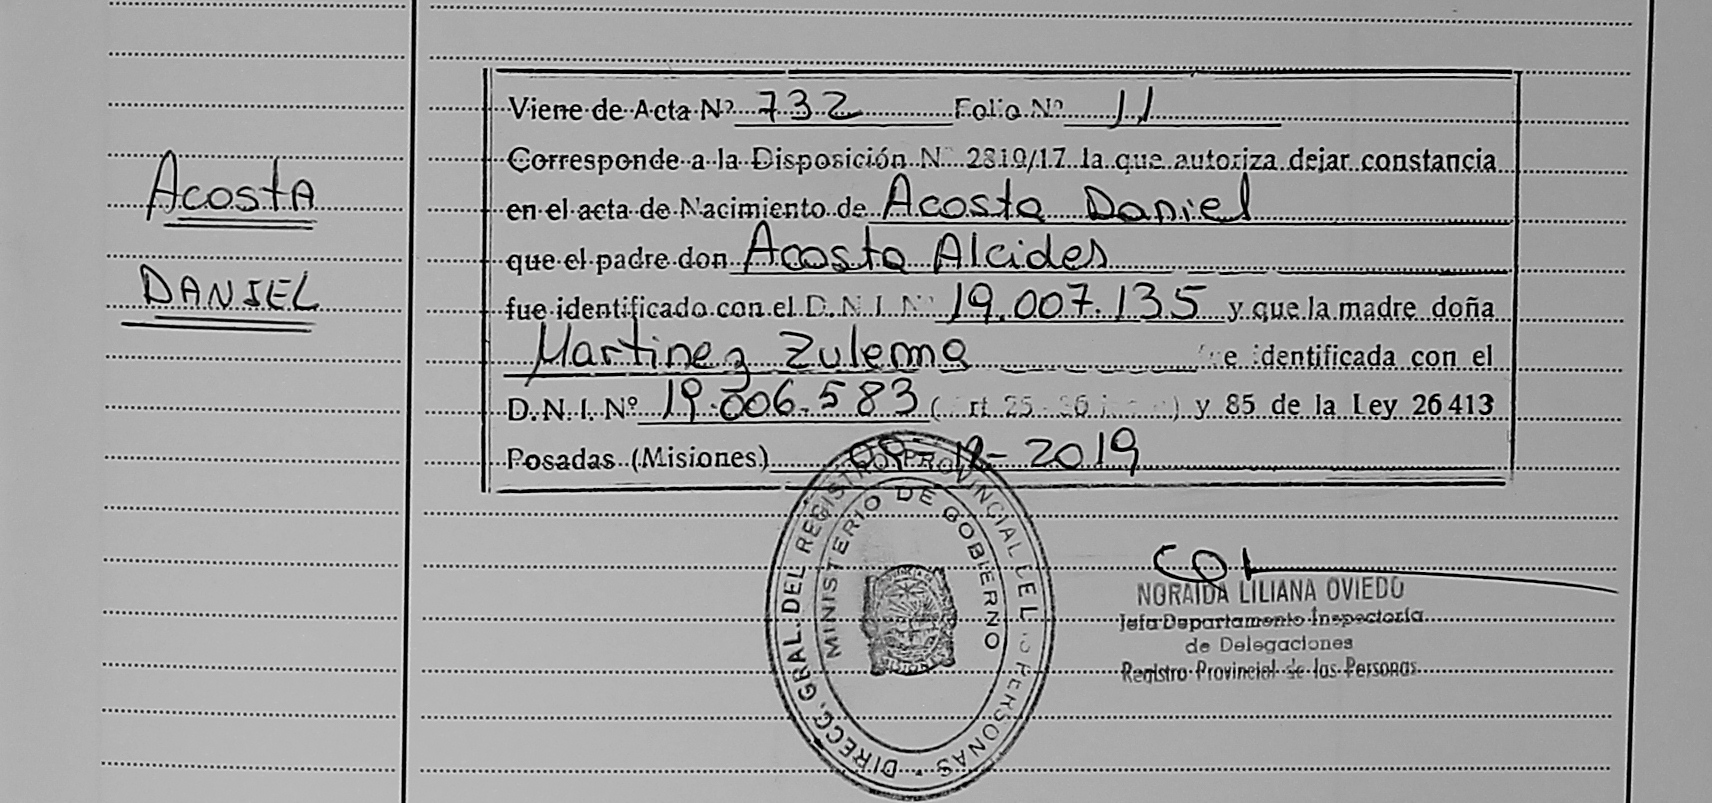 Acosta
DANIEL
Viene de Acta Nº 732 Folio Nº 11
Corresponde a la Disposición N 2810/17 la que autoriza dejar constancia
en el acta de Nacimiento de Acosta Daniel
que el padre don Acosta Alcides
fue identificado con el D.N.I. Nº 19.007.135 y que la madre doña
Martinez Zulema identificada con el
D.N.I. Nº 19.006.583 ( rt 25 ) y 85 de la Ley 26413
Posadas (Misiones) 2019
DIRECC. GRAL. DEL REGISTRO PROVINCIAL DE PERSONAS
MINISTERIO DE GOBIERNO
MISIONES
NORAIDA LILIANA OVIEDO
Jefa Departamento Inspectoría
de Delegaciones
Registro Provincial de las Personas